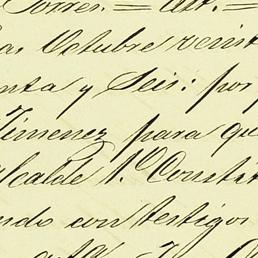 Torres. = Att. =
as Octubre veint
enta y Seis: por
Jimenez para qu
Alcalde 1.º Constit
ndo con testigos